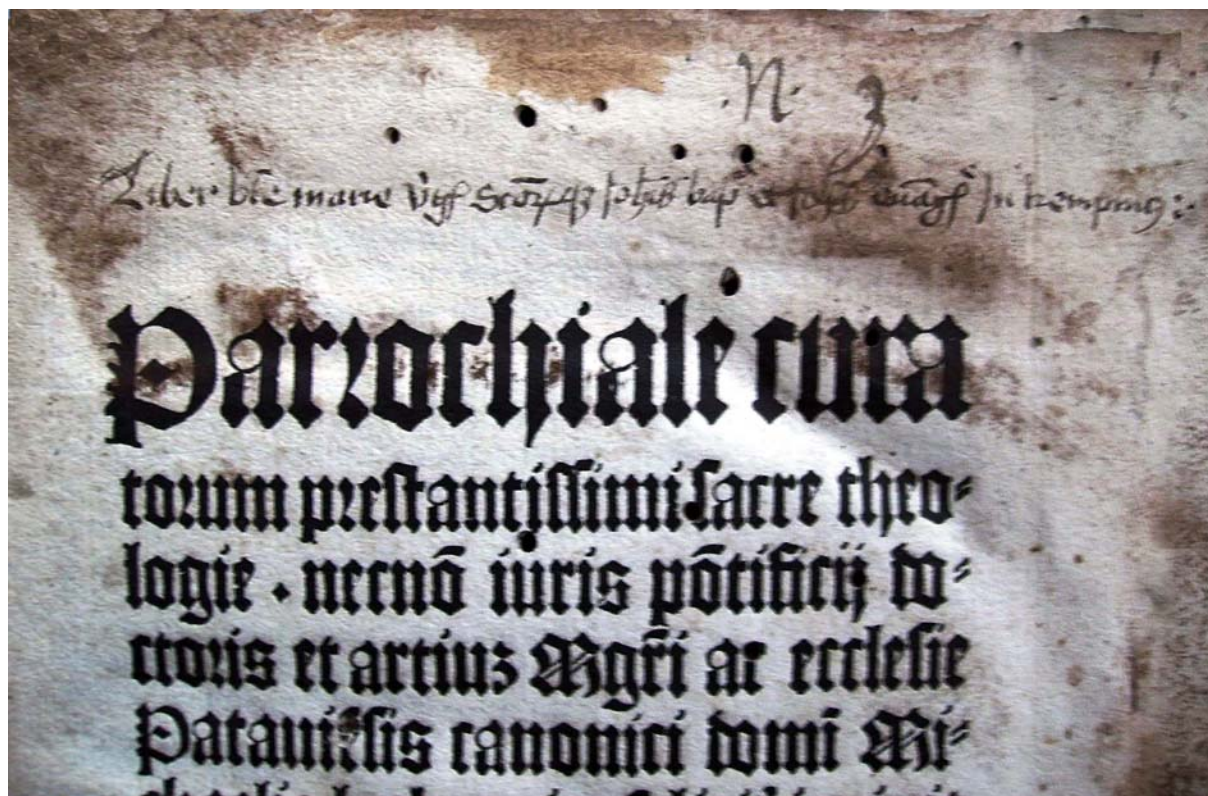 ·N· 3
Liber bte marie v̓gĩs scōrꝫqꝫ Johĩs bap̃ et Johĩs euãg̃ In kempnicz :·
Parrochiale cura
torum prestantissimi sacre theo⸗
logie · necnō iuris pōtificij do⸗
ctoris et artiuꝫ Mgr̃i ac ecclesie
Patauiēsis canonici domī Mi⸗